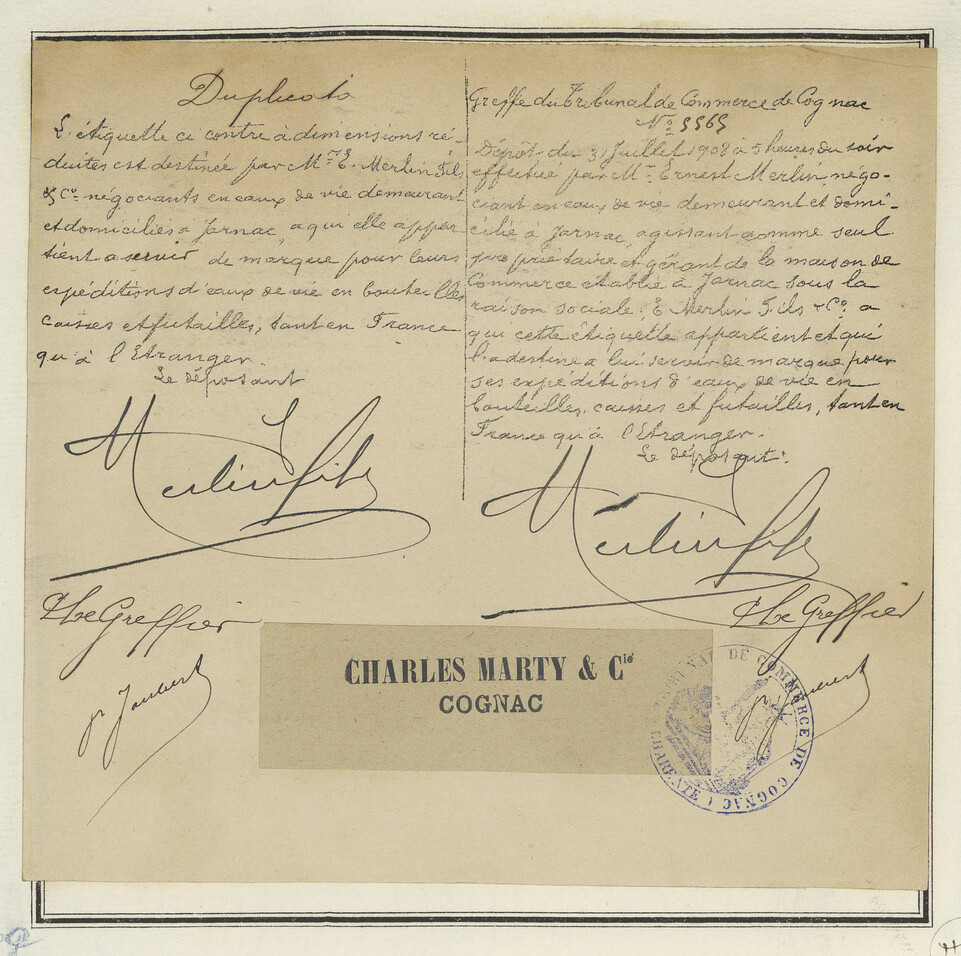 Duplicata
L'étiquette ci contre à dimensions ré-
duites est destinée par Mrs E. Merlin Fils
& Co. négociants en eaux de vie demeurant
et domiciliés à Jarnac, a qui elle appar-
tient a servir de marque pour leurs
expéditions d'eaux de vie en bouteilles
caisses et futailles, tant en France
qu'à l'Etranger.
Le déposant
Merlin Fils
Le Greffier
Greffe du Tribunal de Commerce de Cognac
No 5565
Dépôt du 31 Juillet 1908 à 5 heures du soir
effectué par Mr Ernest Merlin, négo-
ciant en eaux de vie demeurant et domi-
cilié à Jarnac, agissant comme seul
propriétaire et gérant de la maison de
Commerce établie à Jarnac sous la
raison sociale: E Merlin Fils & Co. a
qui cette étiquette appartient et qui
l'a destine a lui servir de marque pour
ses expéditions d'eaux de vie en
bouteilles, caisses et futailles, tant en
France qu'à l'Etranger.
Le déposant:
Merlin Fils
Le Greffier
CHARLES MARTY & Cie
COGNAC
DE COMMERCE DE COGNAC
CHARENTE